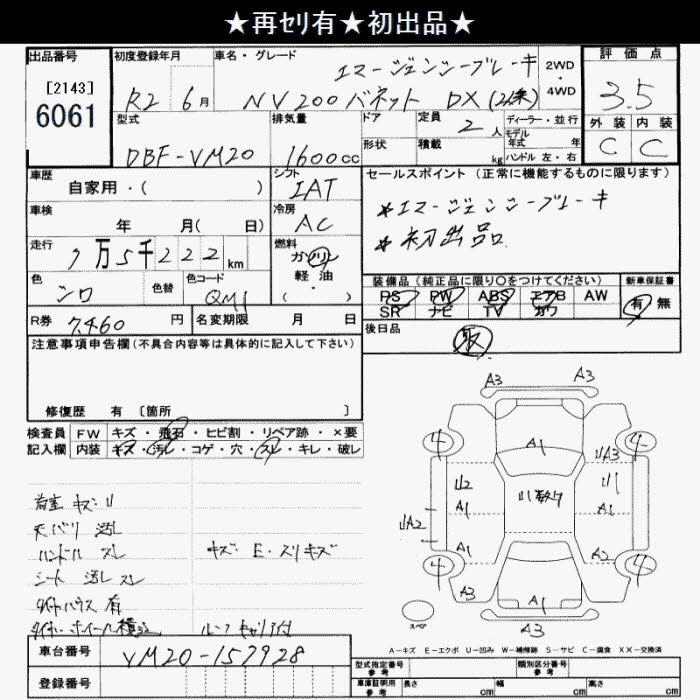 ★再セリ有★初出品★
出品番号 初度登録年月 車名・グレード 評価点
[2143]
6061
R2 6月
エマージェンシーブレーキ
NV200バネット DX
2WD・4WD
3.5
型式 排気量 ドア 定員 2人 ディーラー・並行
モデル年式 年
外装 内装
DBF-VM20 1600cc 形状 積載 kg ハンドル 左・右 C C
車歴 シフト セールスポイント(正常に機能するものに限ります)
自家用・( ) IAT
*エマージェンシーブレーキ
車検 冷房
年 月( 日) AC
*初出品
走行 7万5千222km
燃料 ガソリン 軽油 ( )
色 シロ 色替 色コード QM1
装備品(純正品に限り○をつけてください) 新車保証書
PS PW ABS エアB AW 有 無
SR ナビ TV カワ
R券 7460円 名変期限 月 日
後日品 取
注意事項申告欄(不具合内容等は具体的に記入して下さい)
修復歴 有 [箇所 ]
検査員 FW キズ・飛石・ヒビ割・リペア跡・×要
記入欄 内装 キズ・汚レ・コゲ・穴・スレ・キレ・破レ
A3 A3
4 A1 4
UA3
U2 U1
A1 A1
UA2
A1 A2
4 4
A3 A1 A1
A3
スペア
荷室 キズ・U
天バリ 汚レ
ハンドル スレ キズ・E・スリキズ
シート 汚レ スレ
タイヤハウス 有
タイヤ・ホイール積込 ルーフキャリア付
A-キズ E-エクボ U-凹み W-補修跡 S-サビ C-腐食 XX-交換済
車台番号 VM20-157928
登録番号
型式指定番号 参考 類別区分番号 参考
車庫証明用 参考 長さ cm 幅 cm 高さ cm